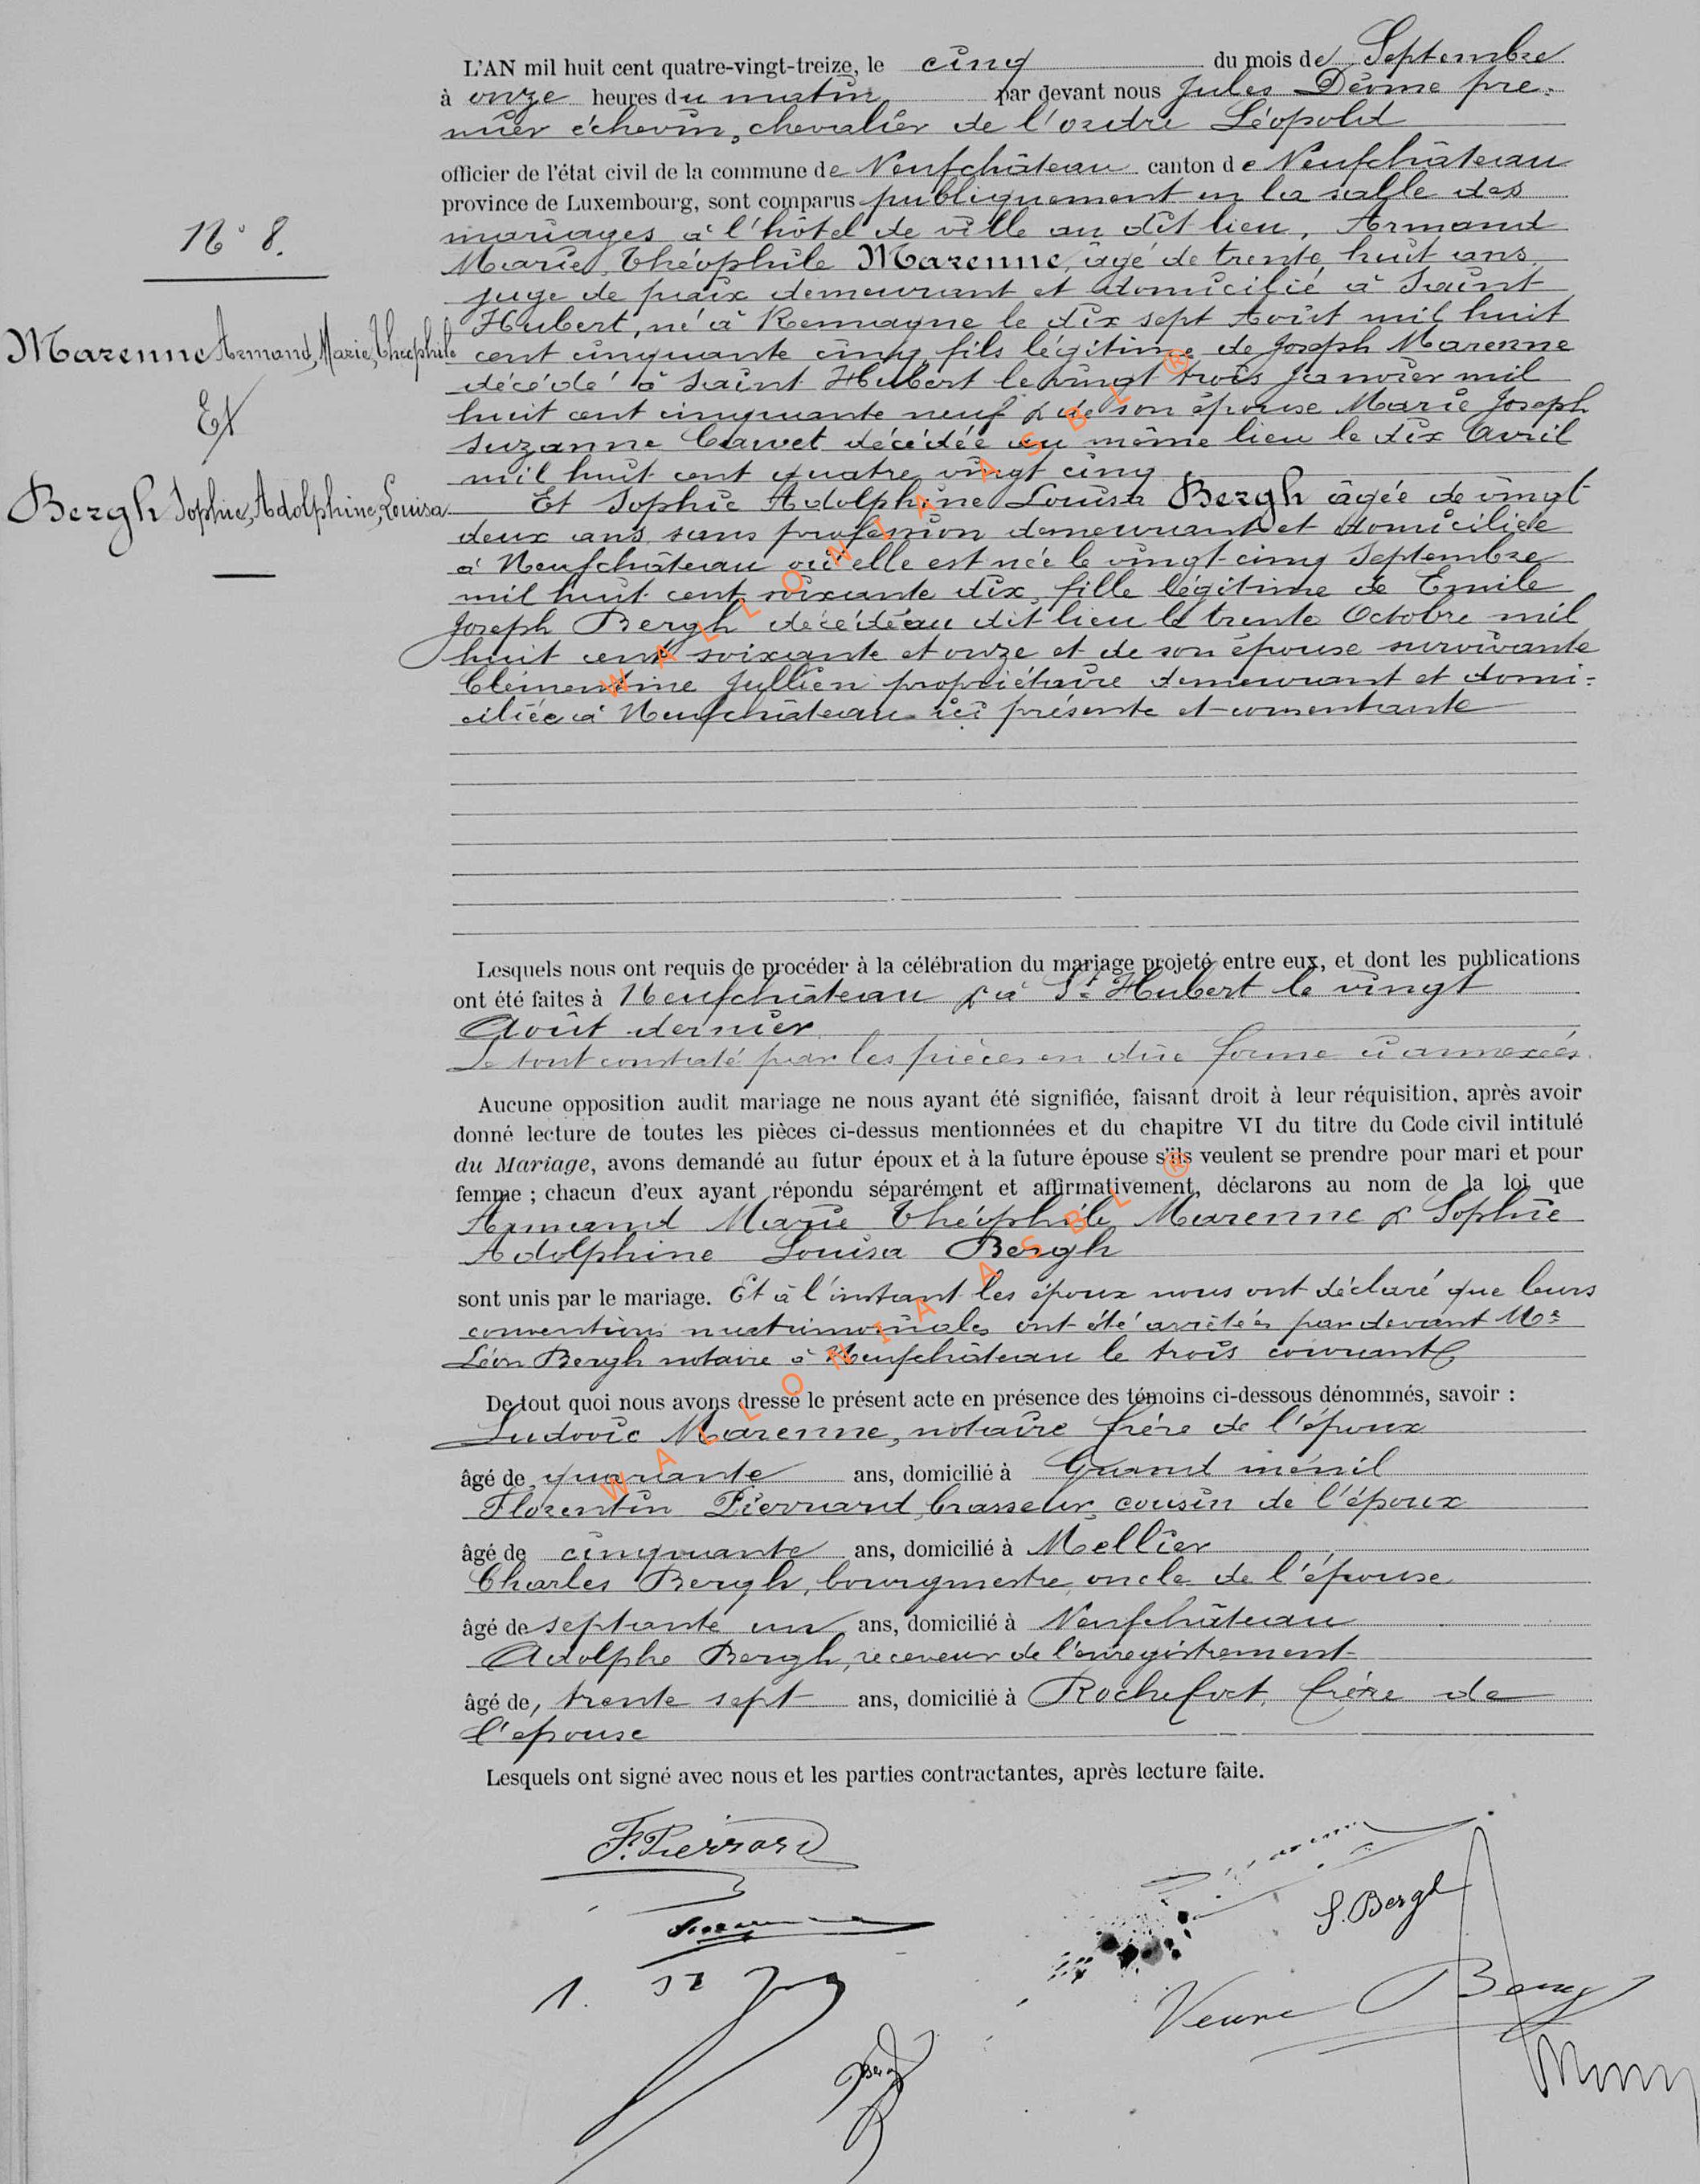 L'AN mil huit cent quatre-vingt-treize, le cinq du mois de Septembre
à onze heures du matin par devant nous Jules Dérome pre-
mier échevin, chevalier de l'ordre Léopold
officier de l'état civil de la commune de Neufchâteau canton de Neufchâteau
province de Luxembourg, sont comparus publiquement en la salle des
mariages à l'hôtel de ville au dit lieu, Armand
N° 8.
Marie, Théophile Marenne, âgé de trente huit ans,
juge de paix demeurant et domicilié à Saint
Hubert, né à Remagne le dix sept Août mil huit
Marenne Armand, Marie, Théophile
cent cinquante cinq, fils légitime de Joseph Marenne
décédé à Saint Hubert le vingt trois Janvier mil
Et
huit cent cinquante neuf & de son épouse Marie Joseph
Suzanne décédée au même lieu le dix Avril
mil huit cent quatre vingt cinq
Bergh Sophie, Adolphine, Louisa
Et Sophie Adolphine Louisa Bergh âgée de vingt
deux ans, sans profession demeurant et domiciliée
à Neufchâteau où elle est née le vingt-cinq Septembre
mil huit cent soixante dix, fille légitime de Emile
Joseph Bergh décédé au dit lieu le trente Octobre mil
huit cent soixante et onze et de son épouse survivante
Clémentine Jullien propriétaire demeurant et domi-
ciliée à Neufchâteau ici présente et consentante
Lesquels nous ont requis de procéder à la célébration du mariage projeté entre eux, et dont les publications
ont été faites à Neufchâteau & à St Hubert le vingt
Août dernier
Le tout constaté par les pièces en due forme ci annexées.
Aucune opposition audit mariage ne nous ayant été signifiée, faisant droit à leur réquisition, après avoir
donné lecture de toutes les pièces ci-dessus mentionnées et du chapitre VI du titre du Code civil intitulé
du Mariage, avons demandé au futur époux et à la future épouse s'ils veulent se prendre pour mari et pour
femme ; chacun d'eux ayant répondu séparément et affirmativement, déclarons au nom de la loi que
Armand Marie Théophile Marenne & Sophie
Adolphine Louisa Bergh
sont unis par le mariage. Et à l'instant les époux nous ont déclaré que leurs
conventions matrimoniales ont été arrêtées par devant Me
Léon Bergh notaire à Neufchâteau le trois courant
De tout quoi nous avons dressé le présent acte en présence des témoins ci-dessous dénommés, savoir :
Ludovic Marenne, notaire frère de l'époux
âgé de quarante ans, domicilié à Grand ménil
Florentin Pierrard, brasseur, cousin de l'époux
âgé de cinquante ans, domicilié à Mellier
Charles Bergh, bourgmestre, oncle de l'épouse
âgé de septante un ans, domicilié à Neufchâteau
Adolphe Bergh, receveur de l'enregistrement
âgé de, trente sept ans, domicilié à Rochefort, frère de
l'épouse
Lesquels ont signé avec nous et les parties contractantes, après lecture faite.
F. Pierrard
S. Bergh
Veuve Bergh
Bergh
WALLONIA ASBL ®
WALLONIA ASBL ®